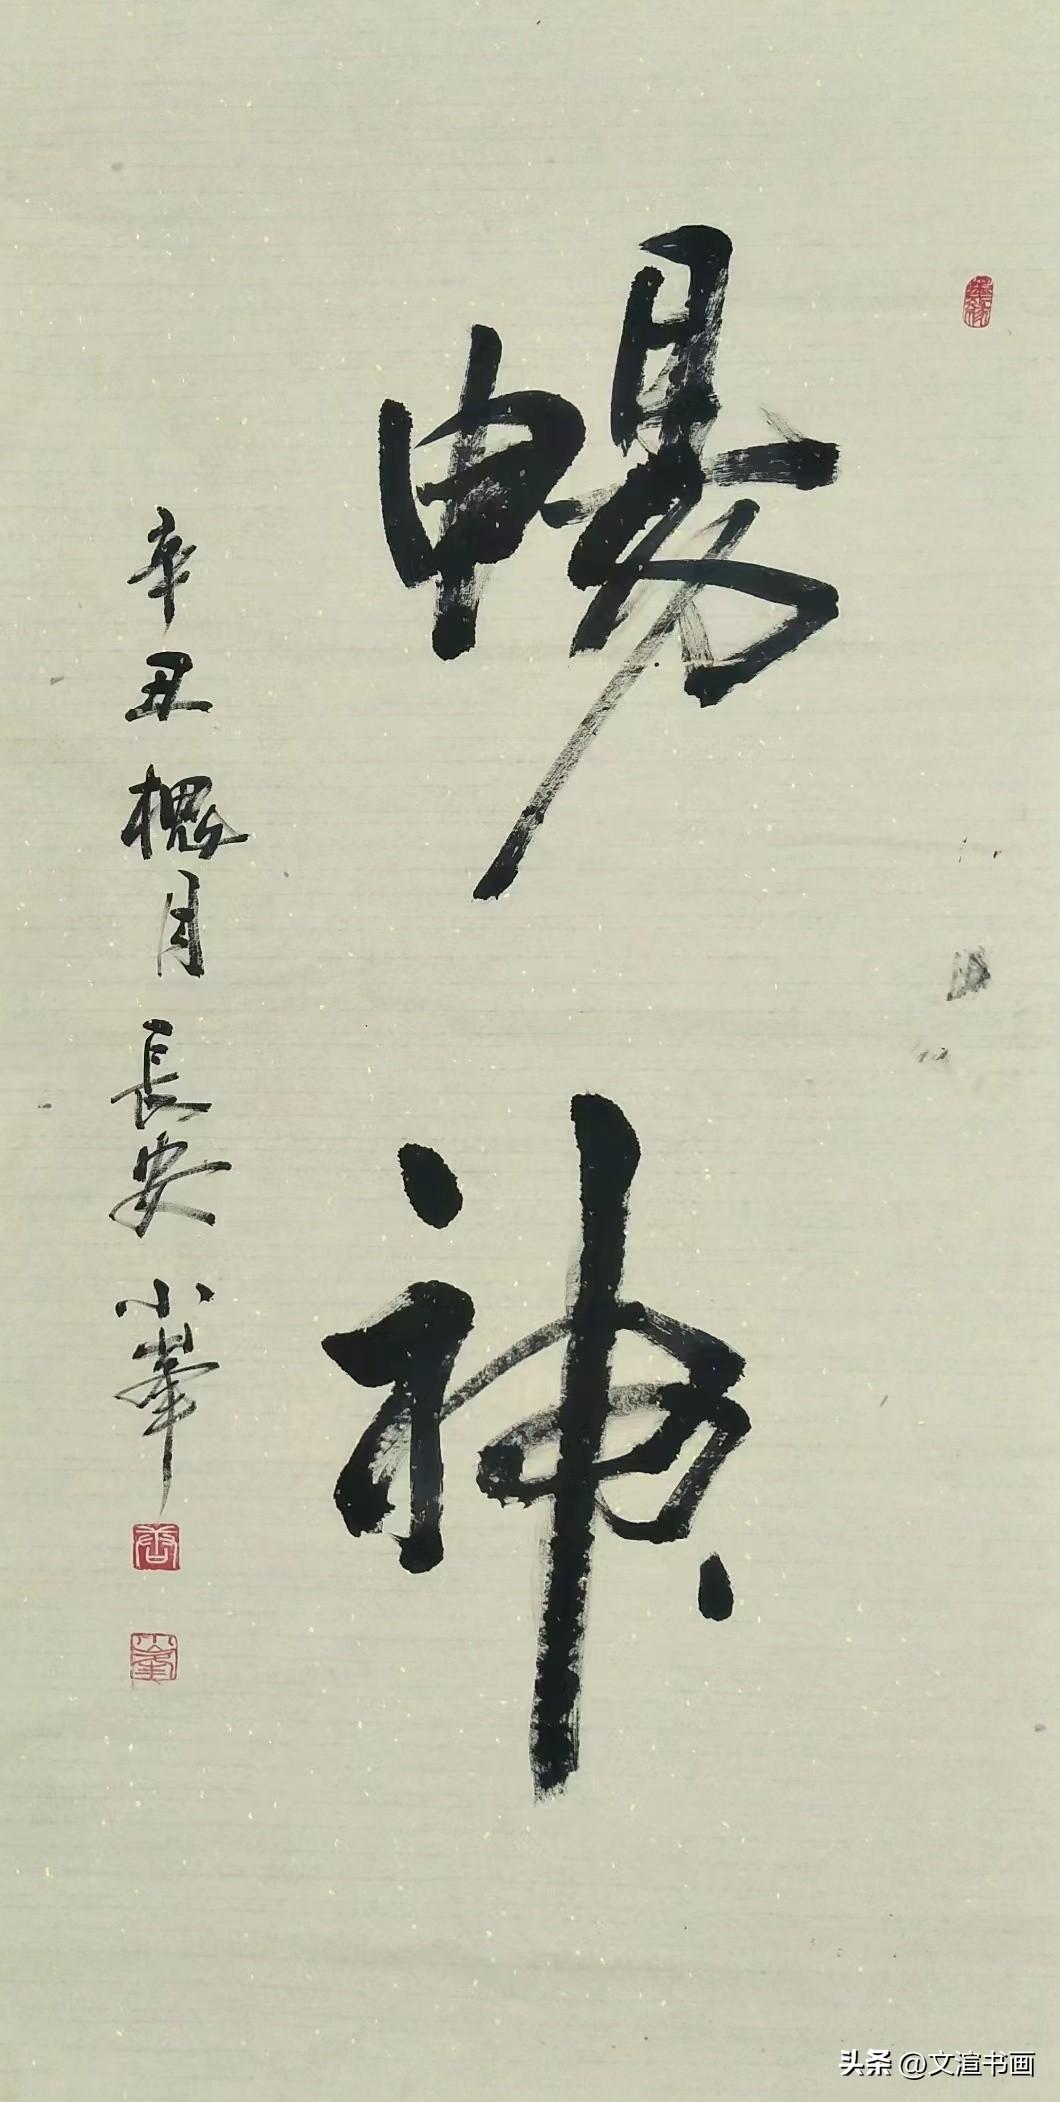 暢神
辛丑槐月長安小峯
头条 @文渲书画